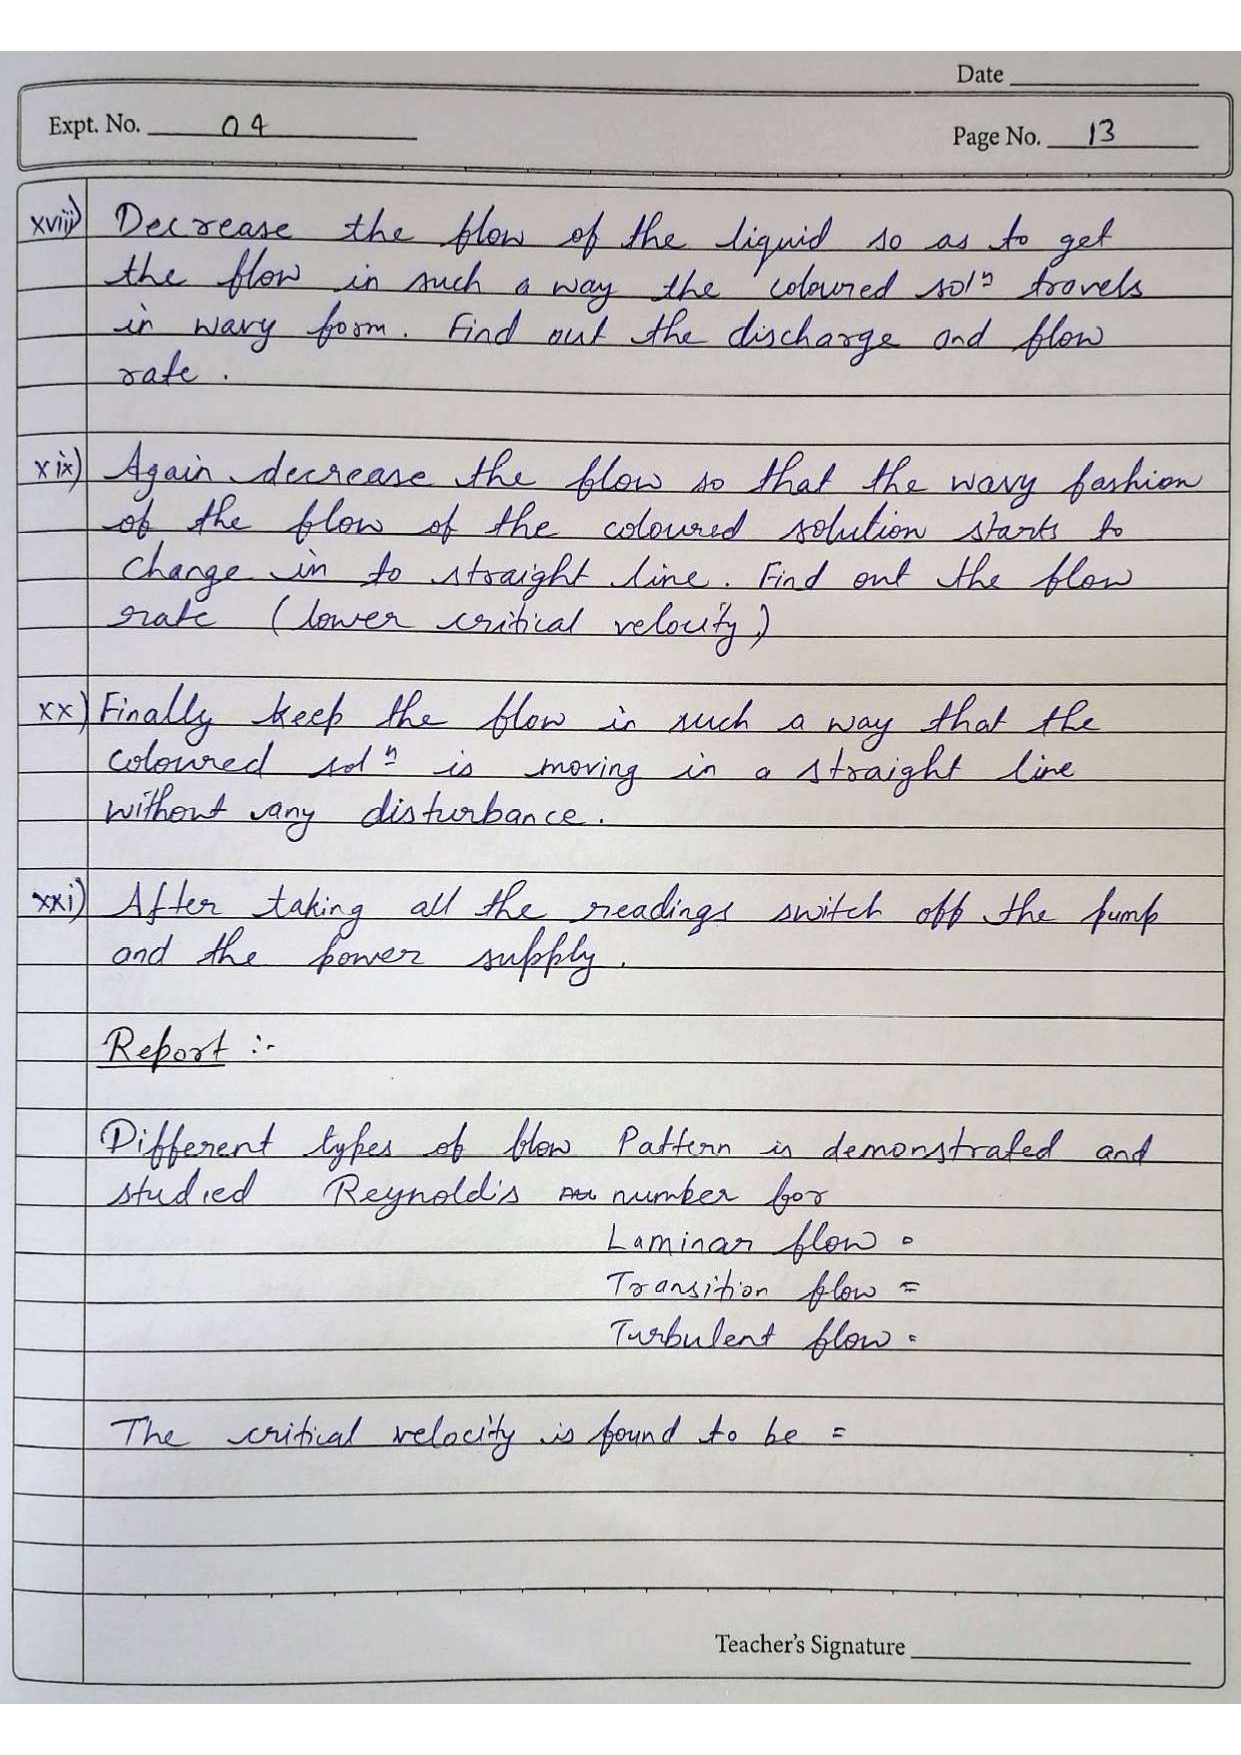 Date
Expt. No. 04
Page No. 13
xviii) Decrease the flow of the liquid so as to get
the flow in such a way the coloured solⁿ travels
in wavy form. Find out the discharge and flow
rate.
xix) Again decrease the flow so that the wavy fashion
of the flow of the coloured solution starts to
change in to straight line. Find out the flow
rate (lower critical velocity)
xx) Finally keep the flow in such a way that the
coloured solⁿ is moving in a straight line
without any disturbance.
xxi) After taking all the readings switch off the pump
and the power supply.
Report :-
Different types of flow Pattern is demonstrated and
studied Reynold's number for
Laminar flow =
Transition flow =
Turbulent flow =
The critical velocity is found to be =
Teacher's Signature